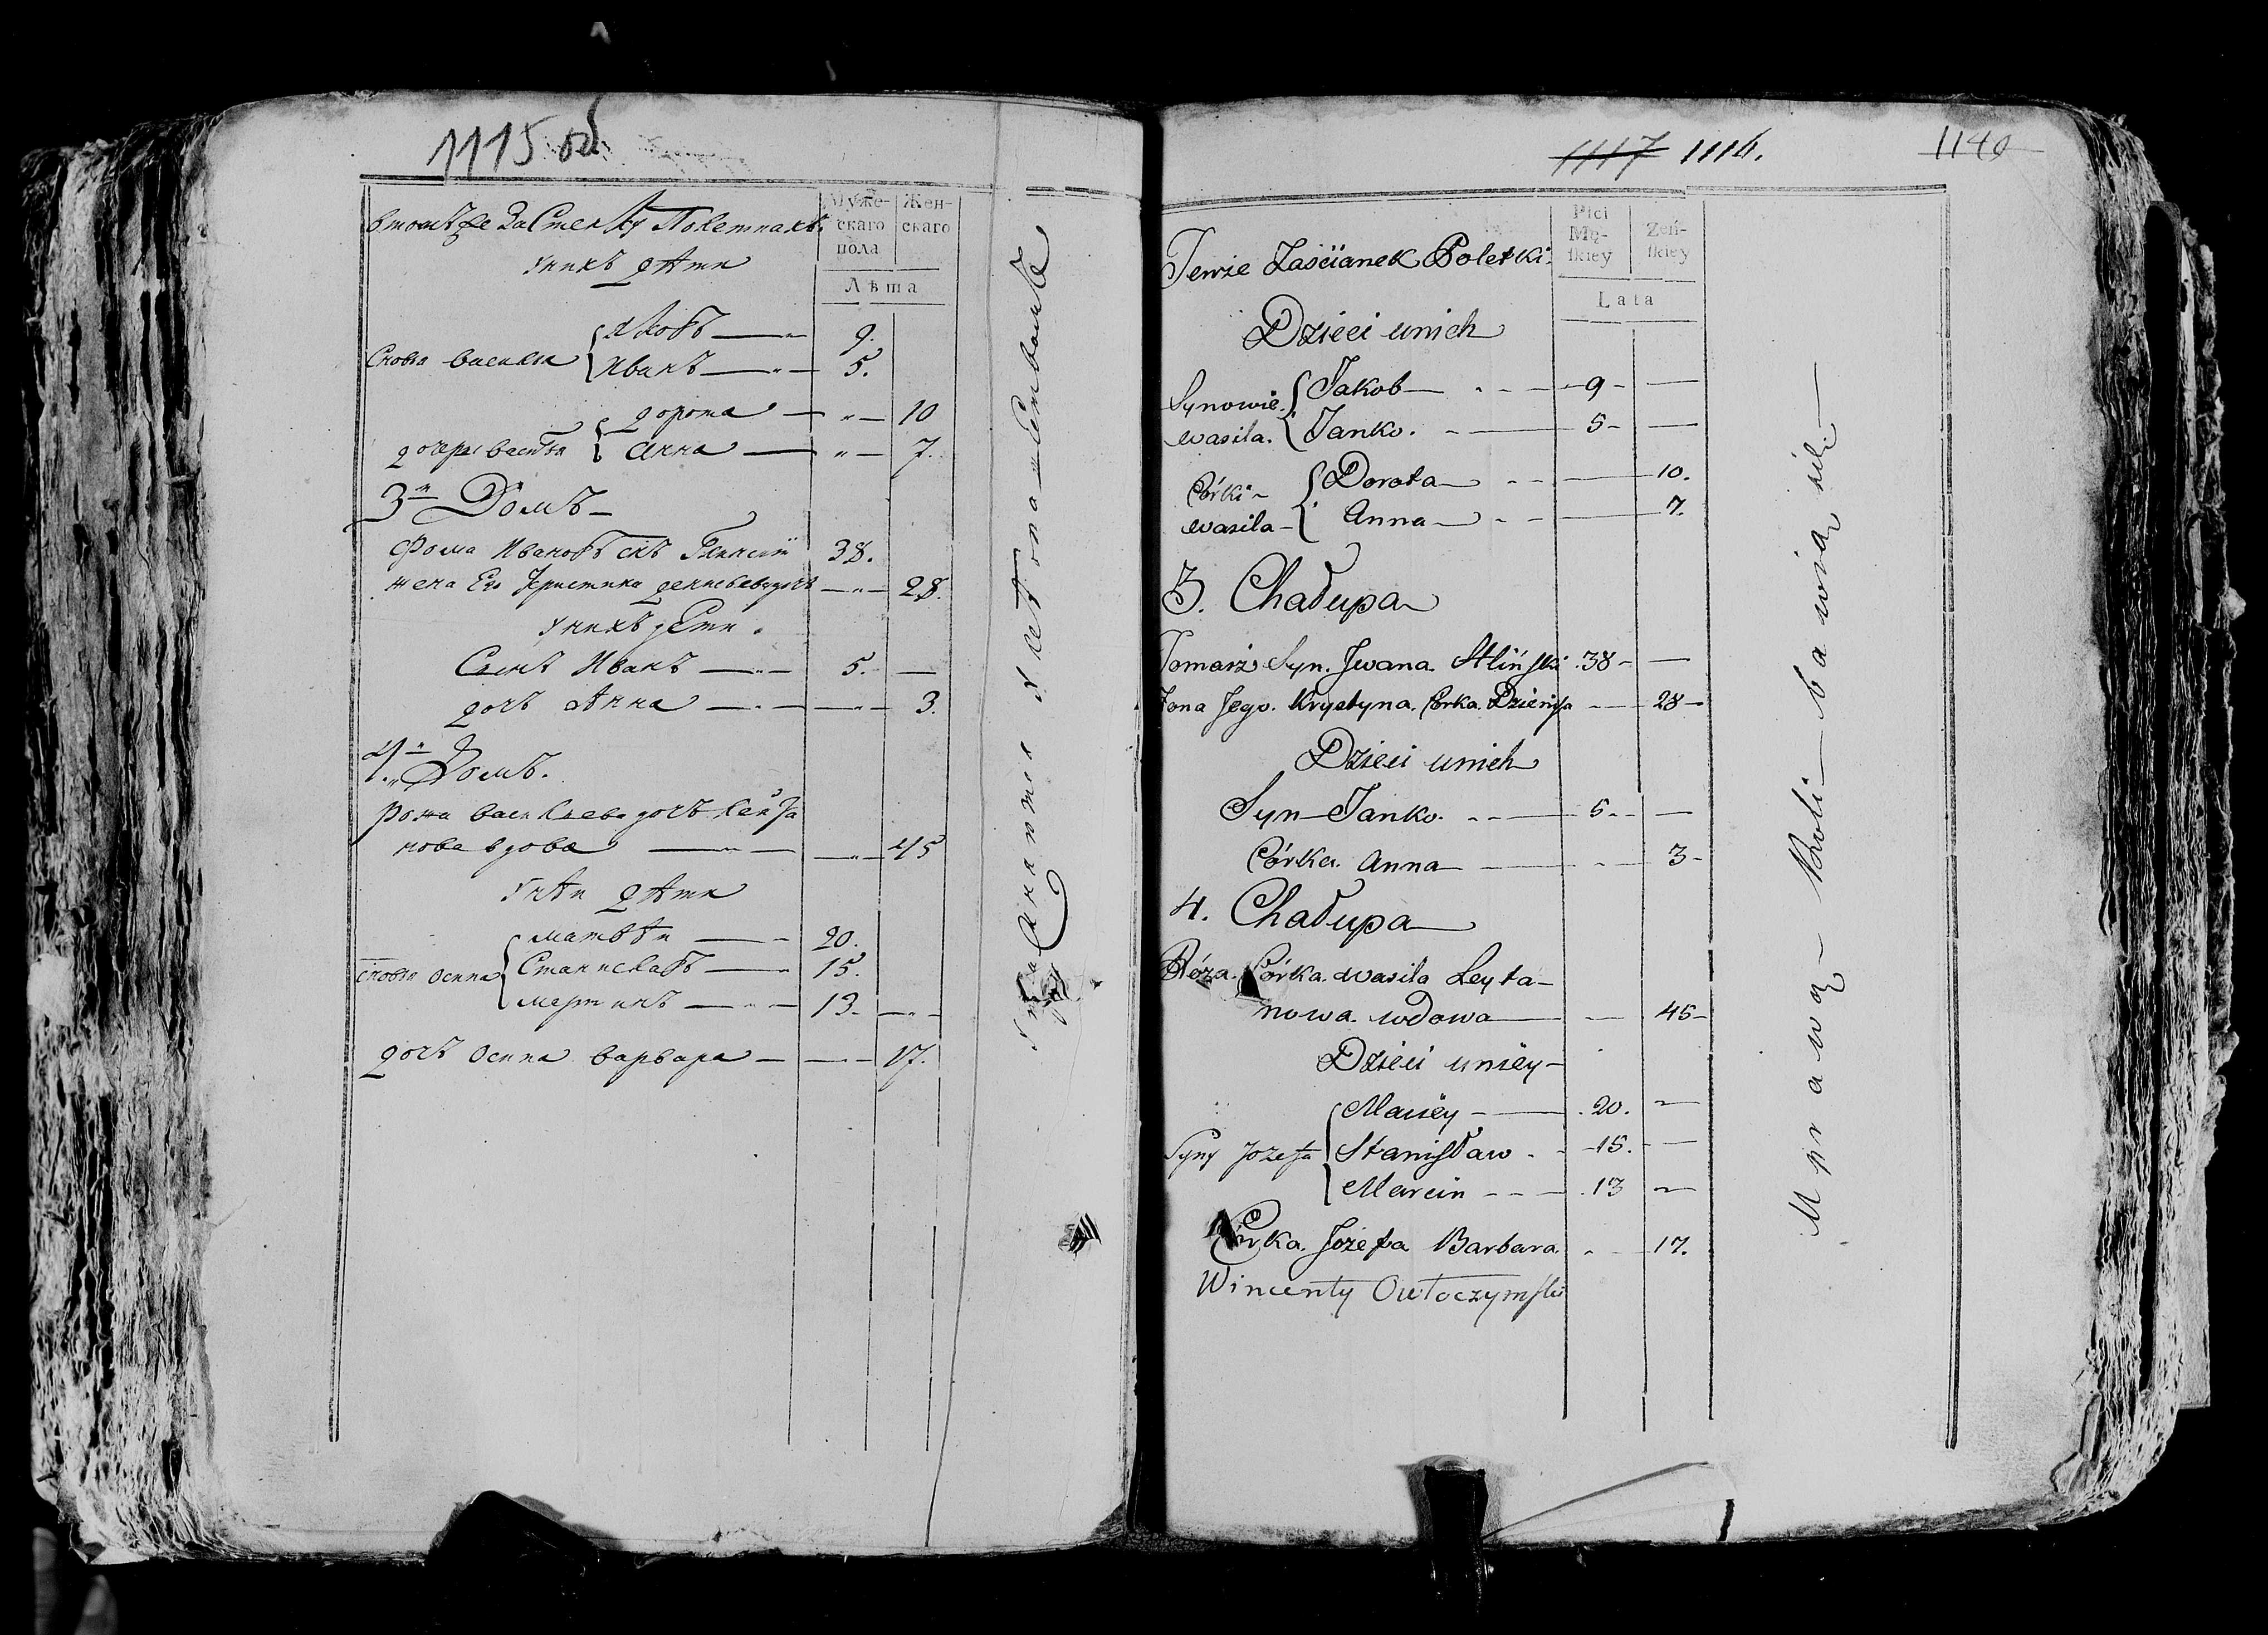 1115 об
втомъже застенку Полетнахъ
Муже-
скаго
пола
Жен-
скаго
Лѣта
унихъ дѣти
Сновя василя
Яковъ 9.
Иванъ 5.
дорота 10
Анна 7.
3й Домъ
Фома Ивановъ снъ 38.
жена Его Христина 28.
унихъ дѣти
Сынъ Иванъ 5.
дочъ Анна 3.
4й Домъ.
Рожа василева дочъ Лейта
нова вдова 45
унѣи дѣти
Матвѣи 20.
сновя осипа Станиславъ 15.
Мартинъ 13.
дочъ осипа варвара 17.
1117 1116.
1140
Tenże Zaścianek Poletki
Płci
Mę-
skiey
Żeń-
skiey
Lata
Dzieci unich
Synowie
wasila.
Jakob 9
Janko. 5
Córki
wasila
Dorota 10.
Anna 7.
3. Chałupa
Tomasz Syn. Jwana. Stliński 38
Żona Jego. Krystyna. Córka. Dzienisa 28
Dzieci unich
Syn Janko. 5
Córka. Anna 3
4. Chałupa
Róza. Córka. wasila Leyta-
nowa wdowa 45
Dzieci unïey
Maciëy 20.
Syny Jozefa Stanisław 15.
Marcin 13
Córka. Jozefa Barbara 17.
Wincenty
U prawą Roli bawią się